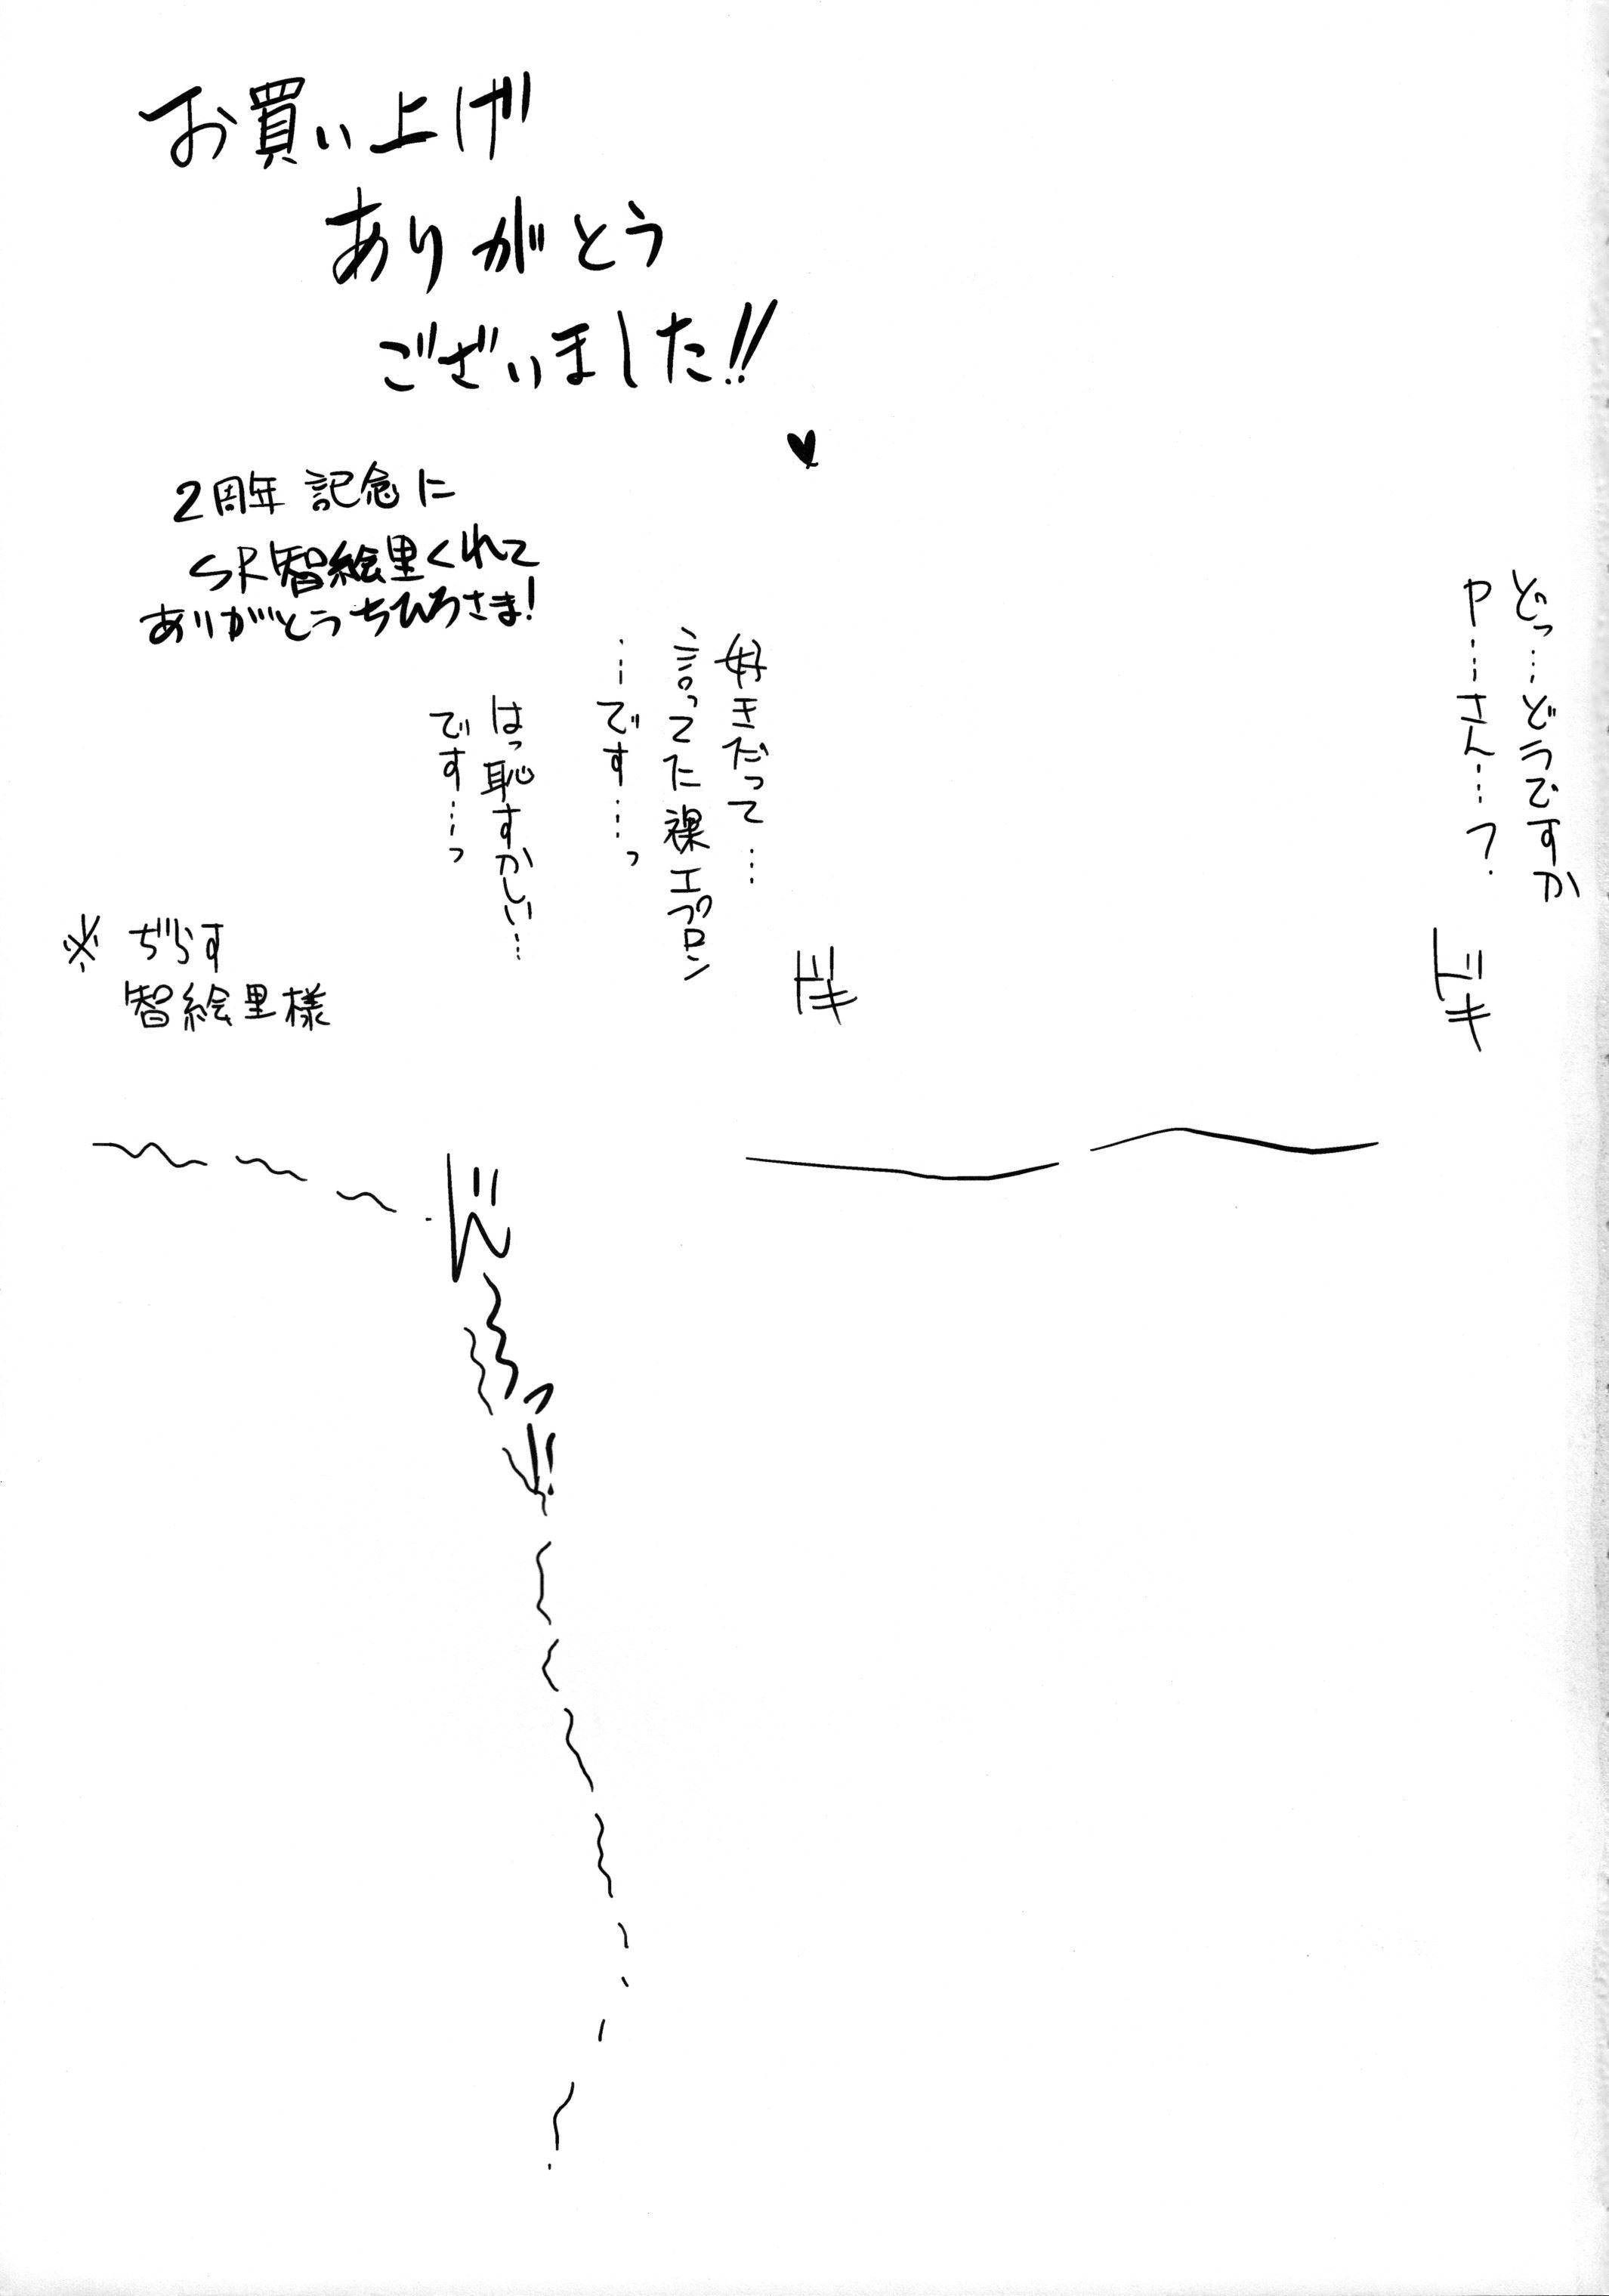 お買い上げ
ありがとう
ございました!!
♥
2周年記念に
SR智絵里くれて
ありがとうちひろさま!
どっ…どうですか
P……さん……?
ドキ
好きだって…
言ってた裸エプロン
……です……っ
はっ恥すかしい…
です……っ
ドキ
※ぢらす
智絵里様